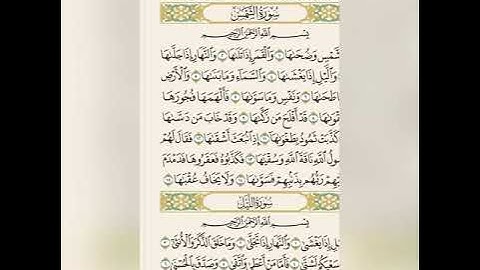 سُورَةُ الشَّمْسِ
بِسْمِ ٱللَّهِ ٱلرَّحْمَٰنِ ٱلرَّحِيمِ
شَّمْسِ وَضُحَىٰهَا ١ وَٱلْقَمَرِ إِذَا تَلَىٰهَا ٢ وَٱلنَّهَارِ إِذَا جَلَّىٰهَا
وَٱلَّيْلِ إِذَا يَغْشَىٰهَا ٤ وَٱلسَّمَآءِ وَمَا بَنَىٰهَا ٥ وَٱلْأَرْضِ
طَحَىٰهَا ٦ وَنَفْسٍ وَمَا سَوَّىٰهَا ٧ فَأَلْهَمَهَا فُجُورَهَا
قْوَىٰهَا ٨ قَدْ أَفْلَحَ مَن زَكَّىٰهَا ٩ وَقَدْ خَابَ مَن دَسَّىٰهَا
كَذَّبَتْ ثَمُودُ بِطَغْوَىٰهَآ ١١ إِذِ ٱنۢبَعَثَ أَشْقَىٰهَا ١٢ فَقَالَ لَهُمْ
سُولُ ٱللَّهِ نَاقَةَ ٱللَّهِ وَسُقْيَٰهَا ١٣ فَكَذَّبُوهُ فَعَقَرُوهَا فَدَمْدَمَ
يْهِمْ رَبُّهُم بِذَنۢبِهِمْ فَسَوَّىٰهَا ١٤ وَلَا يَخَافُ عُقْبَٰهَا ١٥
سُورَةُ اللَّيْلِ
بِسْمِ ٱللَّهِ ٱلرَّحْمَٰنِ ٱلرَّحِيمِ
يْلِ إِذَا يَغْشَىٰ ١ وَٱلنَّهَارِ إِذَا تَجَلَّىٰ ٢ وَمَا خَلَقَ ٱلذَّكَرَ وَٱلْأُنثَىٰٓ ٣
سَعْيَكُمْ لَشَتَّىٰ ٤ فَأَمَّا مَنْ أَعْطَىٰ وَٱتَّقَىٰ ٥ وَصَدَّقَ بِٱلْحُسْنَىٰ ٦